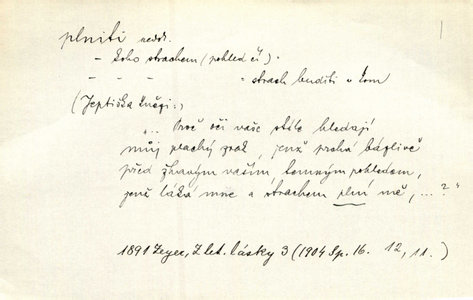 plniti nedok.
– koho strachem (pohled čí)
– – – = strach buditi v kom
(Jeptiška knězi:)
„... Proč oči vaše stále hledají
můj plachý zrak, jenž prchá bázlivě
před žhavým vaším, temným pohledem,
jenž láká mne a strachem plní mě, ...?“
1891 Zeyer, Z let. lásky 3 (1904 Sp. 16. 12, 11.)